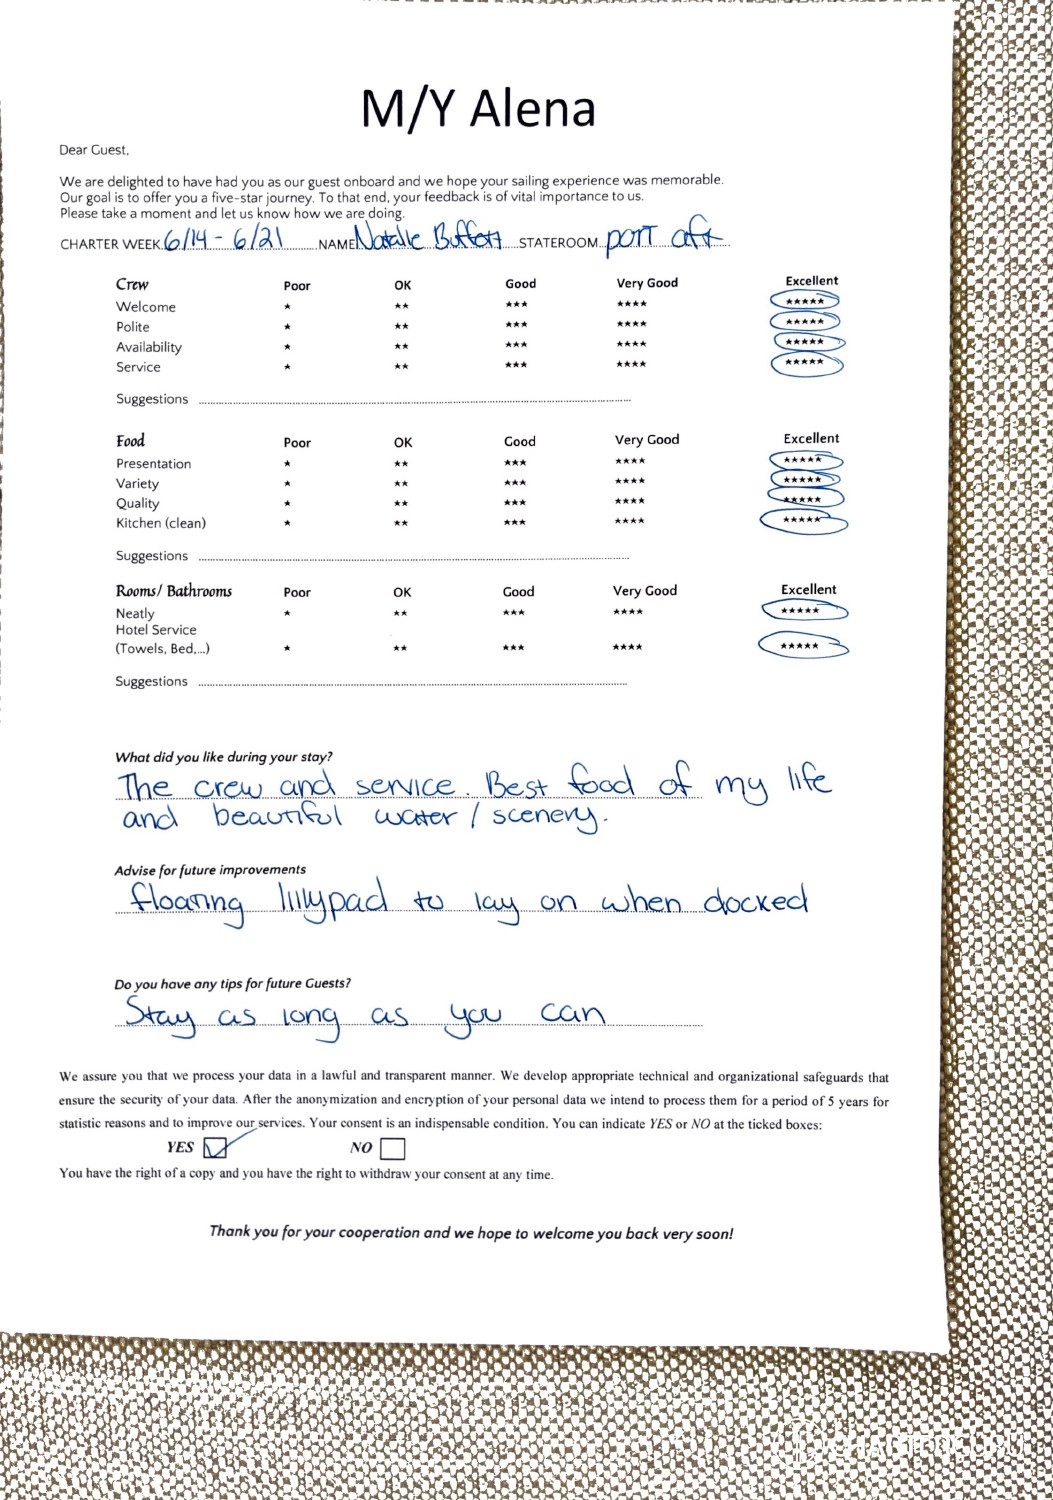 M/Y Alena
Dear Guest,
We are delighted to have had you as our guest onboard and we hope your sailing experience was memorable.
Our goal is to offer you a five-star journey. To that end, your feedback is of vital importance to us.
Please take a moment and let us know how we are doing.
CHARTER WEEK 6/14 - 6/21 NAME Natalie STATEROOM port aft
Crew Poor OK Good Very Good Excellent
Welcome * ** *** **** *****
Polite * ** *** **** *****
Availability * ** *** **** *****
Service * ** *** **** *****
Suggestions
Food Poor OK Good Very Good Excellent
Presentation * ** *** **** *****
Variety * ** *** **** *****
Quality * ** *** **** *****
Kitchen (clean) * ** *** **** *****
Suggestions
Rooms/ Bathrooms Poor OK Good Very Good Excellent
Neatly * ** *** **** *****
Hotel Service
(Towels, Bed,...) * ** *** **** *****
Suggestions
What did you like during your stay?
The crew and service. Best food of my life
and beautiful water / scenery.
Advise for future improvements
floating lillypad to lay on when docked
Do you have any tips for future Guests?
Stay as long as you can
We assure you that we process your data in a lawful and transparent manner. We develop appropriate technical and organizational safeguards that
ensure the security of your data. After the anonymization and encryption of your personal data we intend to process them for a period of 5 years for
statistic reasons and to improve our services. Your consent is an indispensable condition. You can indicate YES or NO at the ticked boxes:
YES NO
You have the right of a copy and you have the right to withdraw your consent at any time.
Thank you for your cooperation and we hope to welcome you back very soon!